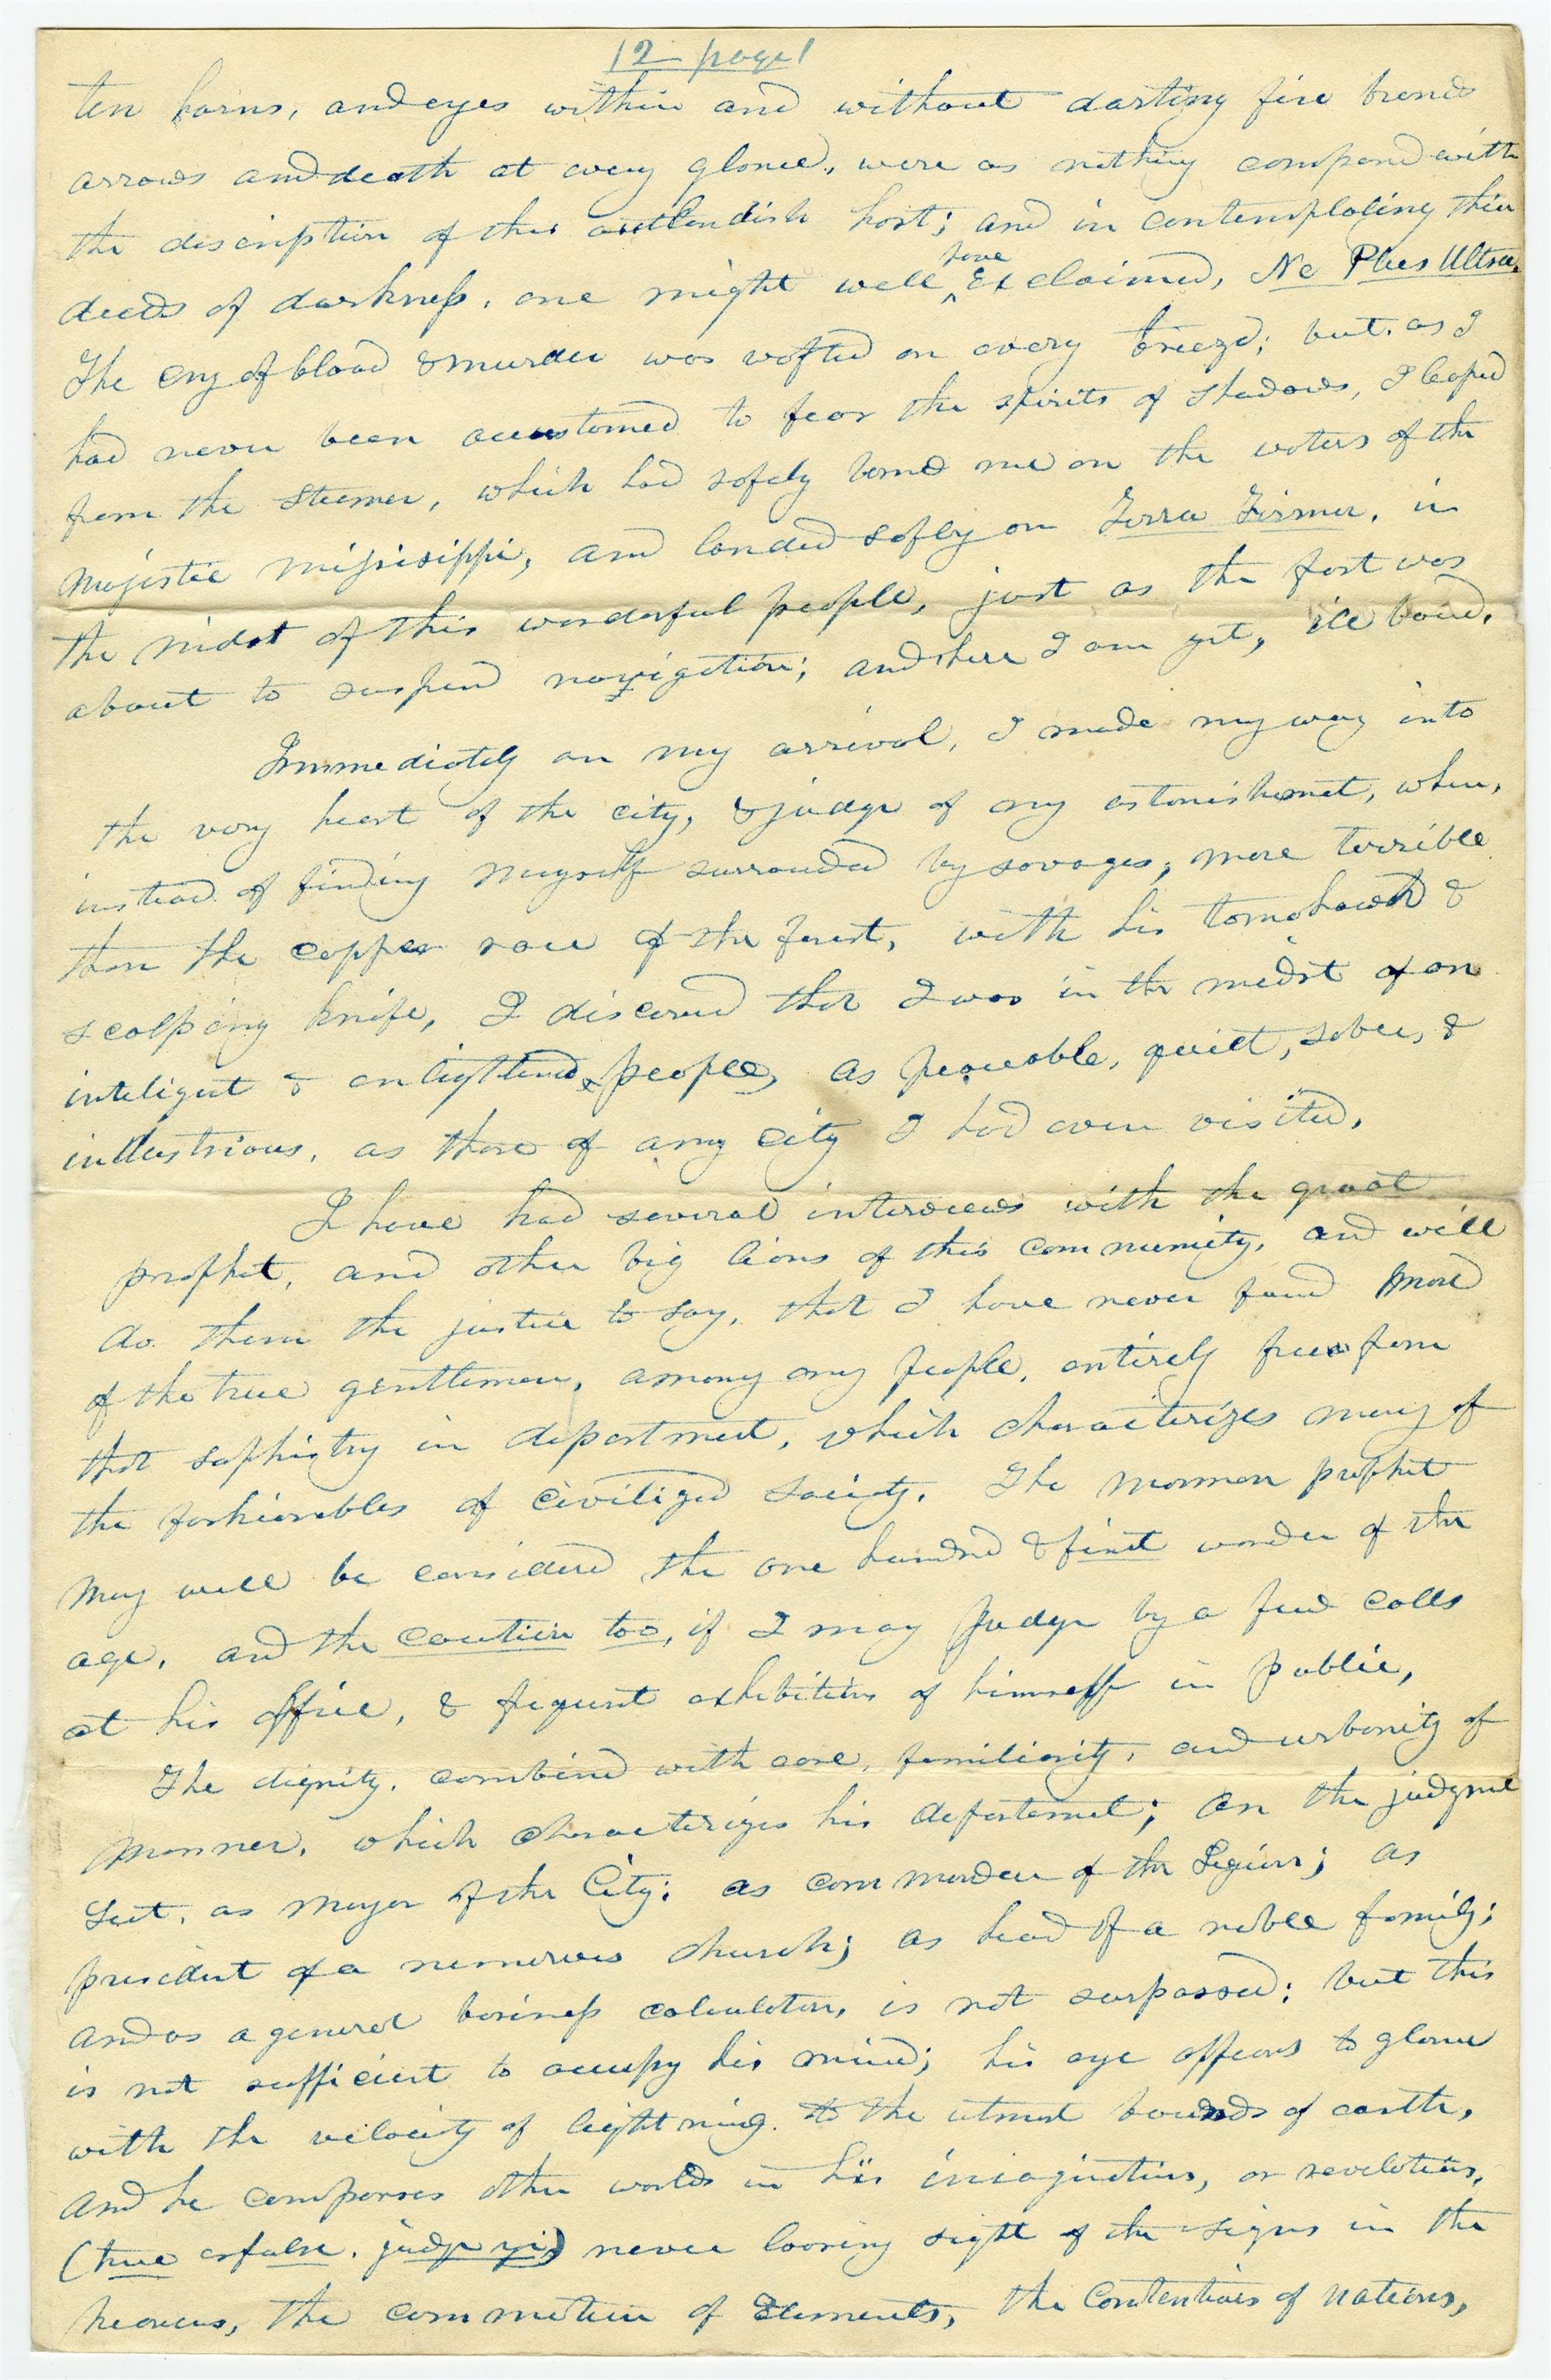 12 page 1
ten horns, and eyes within and without darting fire brands
arrows and death at every glance, were as nothing compard with
the discription of this outlandish host; and in contemplating their
deeds of darkness, one might well ^have Exclaimed, Ne Plus Ultra.
The cry of blood & murder was wafted on every breeze; but, as I
had never been accustomed to fear the spirits of shadows, I leaped
from the steamer, which had safely borne me on the waters of the
majestic Missisippi, and landed safely on Terra Firmer, in
the midst of this wonderful people, just as the frost was
about to suspend navigation; and here I am yet, ice bound.
Immediately on my arrival, I made my way into
the very heart of the city, & judge of my astonishment, when,
instead of finding myself surrounded by savages, more terrible
than the copper race of the forest, with his tomahawk &
scalping knife, I discovered that I was in the midst of an
inteligent & enlightened people, as peaceable, quiet, sober, &
industrious, as those of any city I had ever visited.
I have had several interviews with the great
prophet, and other big lions of this community, and will
do them the justice to say, that I have never found more
of the true gentleman, among any people, entirely free from
that sophistry in department, which characterizes many of
the fashionables of civilized society. The mormon prophet
may well be considered the one hundred & first wonder of the
age, and the caution too, if I may judge by a few calls
at his office, & frequent exhibitions of himself in public,
The dignity, combined with care, familiarity, and urbanity of
manner, which characterizes his deportment; on the judgment
seat, as mayor of the City; as commander of the Legion; as
president of a numerous church; as head of a noble family;
and as a general business calculator, is not surpassed; but this
is not sufficient to occupy his mind; his eye appears to glance
with the velocity of lightning to the utmost bounds of earth,
and he compasses other worlds in his imaginations, or revelations,
(true or false, judge ye,) never loosing sight of the signs in the
heavens, the commotion of Elements, the Contentions of Nations,